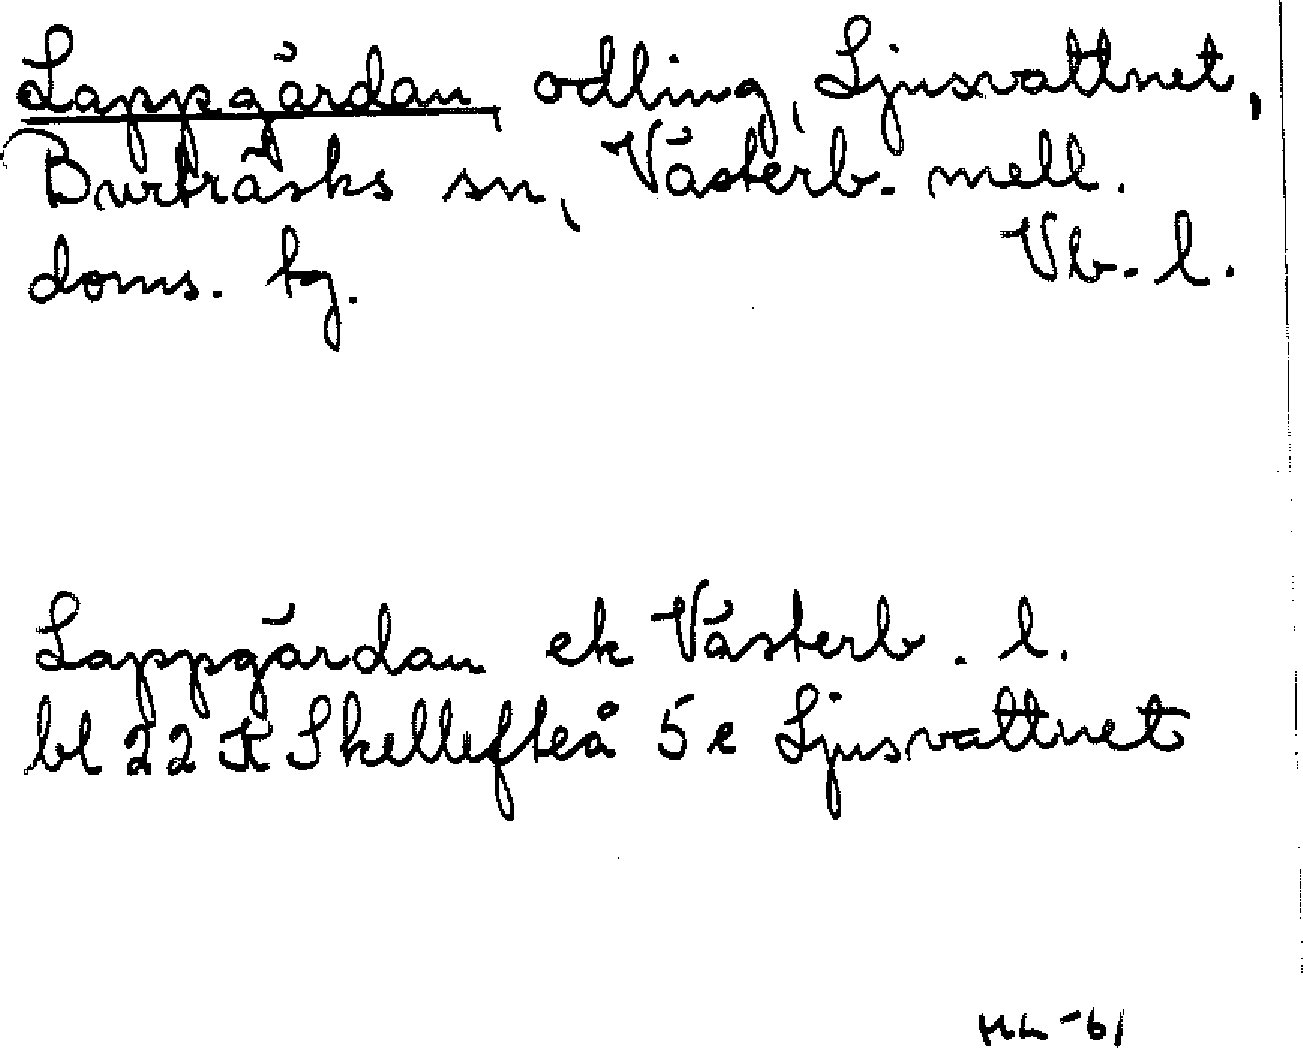 Lappgärdan, odling, Ljusvattnet,
Burträsks sn, Västerb. mell.
doms. tg. Vb. l.
Lappgärdan ek Västerb. l.
bl 22 K Skellefteå 5 e Ljusvattnet
HL -61